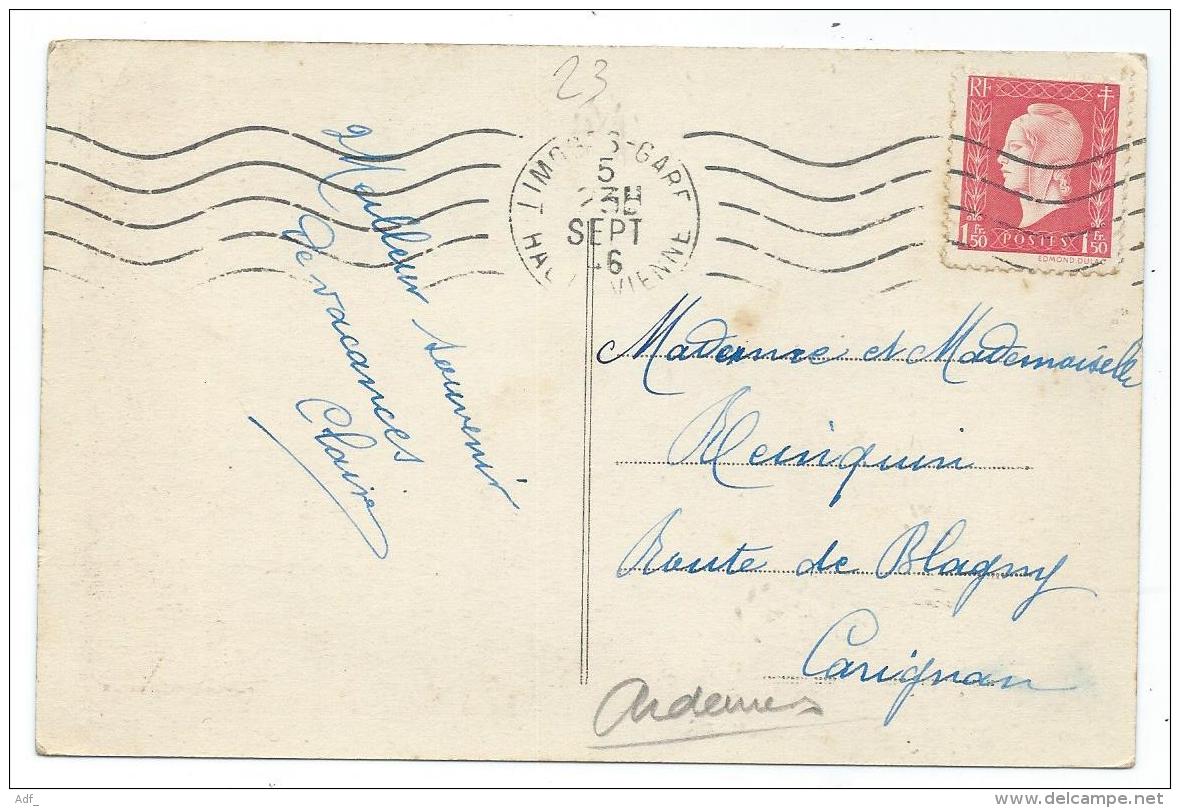 23
RF
LIMOGES-GARE
5
23H
SEPT
46
HAUTE VIENNE
1F50 POSTES 1F50
EDMOND.DULAC
Meilleur souvenir
de vacances
Claire
Madame et Mademoiselle
Route de Blagny
Carignan
Ardennes
Adf_
www.delcampe.net